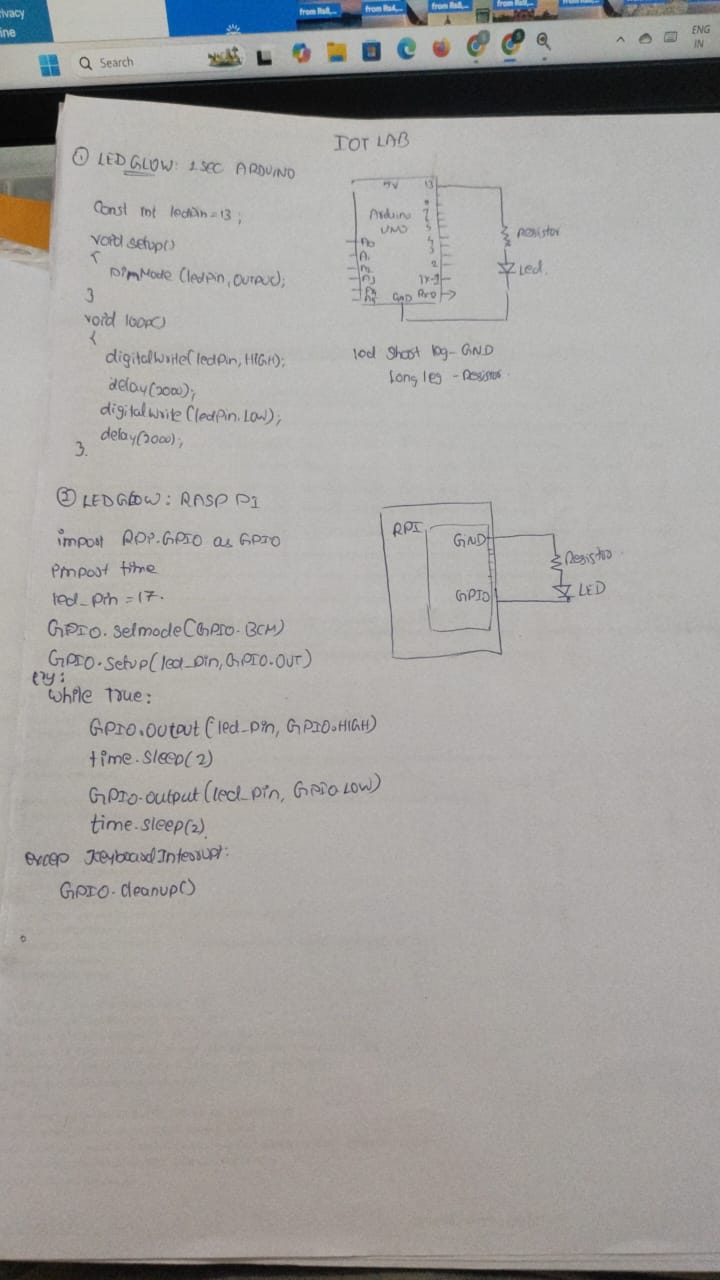 rivacy
ine
from Rs8,...
from Rs4,...
from Rs8,...
from Rs8,...
Search
ENG
IN
IOT LAB
① LED GLOW: 1 SEC ARDUINO
Const int ledPin = 13;
void setup()
{
pinMode (ledPin, OUTPUT);
}
void loop()
{
digitalWrite(ledPin, HIGH);
delay(2000);
digitalWrite (ledPin, LOW);
delay(2000);
}.
5V
13
Arduino
UNO
A0
2
GND
resistor
Led.
led Short leg - GND
long leg - Resistor.
② LED GLOW: RASP PI
import RPi.GPIO as GPIO
import time
led_pin = 17.
GPIO.setmode(GPIO.BCM)
GPIO.setup(led_pin, GPIO.OUT)
try:
while True:
GPIO.output (led_pin, GPIO.HIGH)
time.sleep(2)
GPIO.output (led_pin, GPIO LOW)
time.sleep(2).
excep KeyboardInterrupt:
GPIO.cleanup()
RPI
GND
GPIO
Resistor
LED